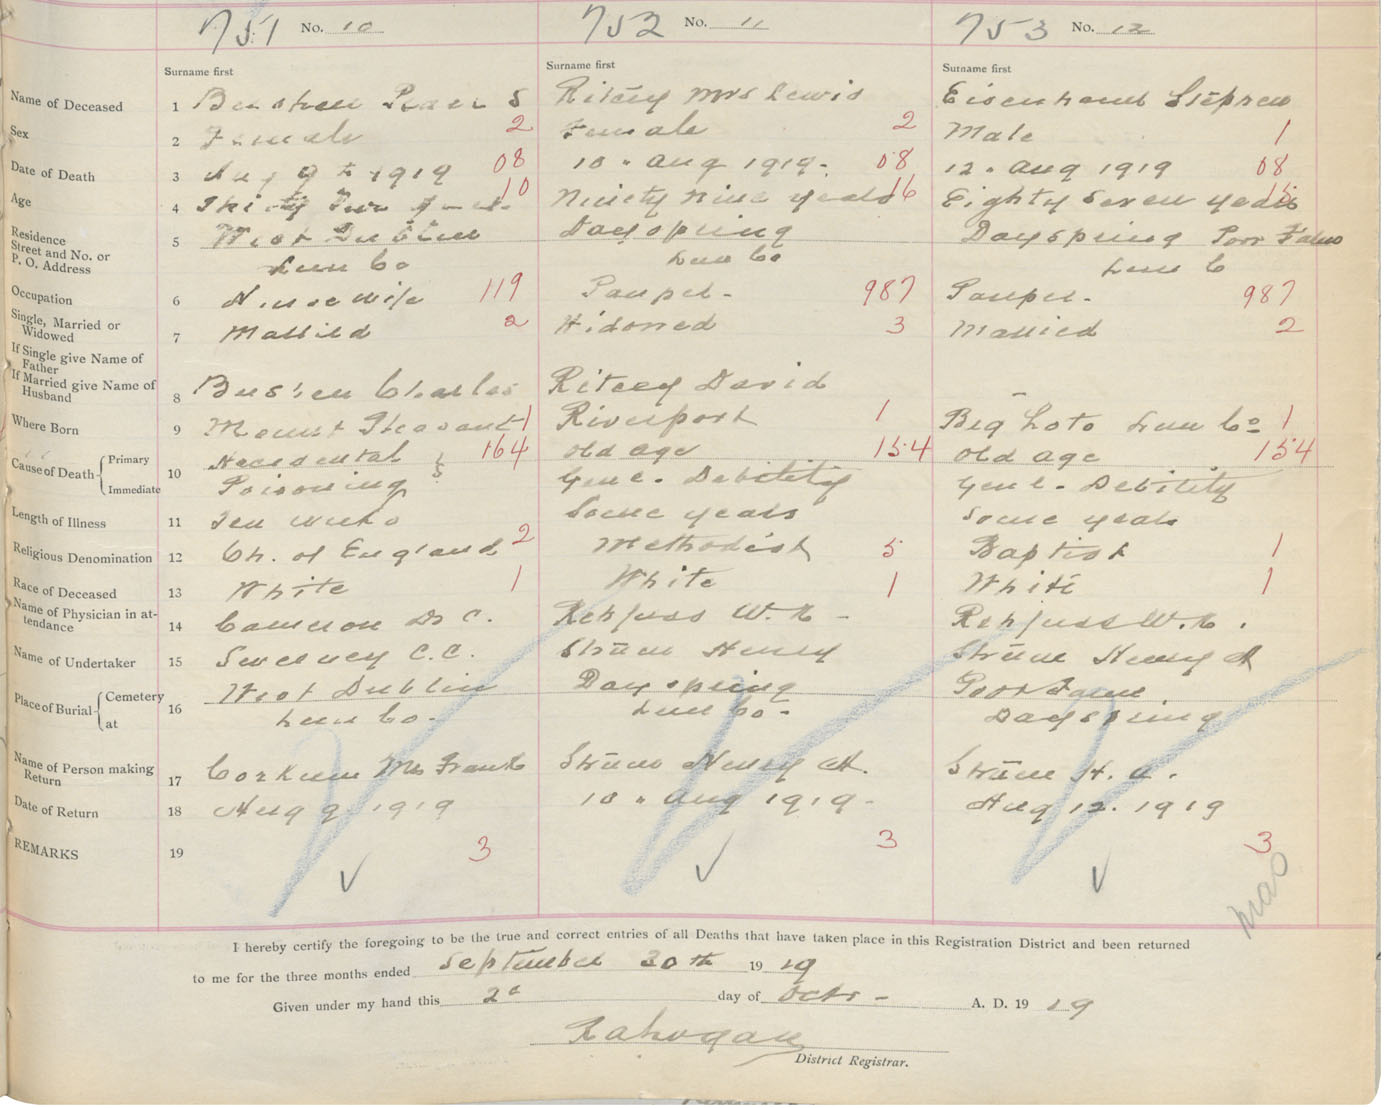 751 No. 10 752 No. 11 753 No. 12
Surname first Surname first Surname first
Name of Deceased 1 S Ritcey Mrs Lewis Eisenhauer Stephen
Sex 2 Female 2 Female 2 Male 1
Date of Death 3 Aug 9th 1919 08 10" Aug 1919- 08 12" Aug 1919 08
10 16 15
Age 4 Thirty Ninety nine years Eighty Seven years
Residence
Street and No. or
P. O. Address
5 West Dublin Dayspring Dayspring Poor Farm
Lun Co Lun Co Lun C
Occupation 6 House wife 119 Pauper- 987 Pauper- 987
Single, Married or
Widowed
7 Married 2 Widowed 3 Married 2
If Single give Name of
Father
If Married give Name of
Husband
8 Charles Ritcey David -
Where Born 9 Mount Pleasant 1 Riverport 1 Big Lots Lun Co 1
Cause of Death Primary
Immediate
10 Accidental 164 old age 154 old age 154
Poisoning Genl. Debility Genl. Debility
Length of Illness 11 weeks Some years Some years
Religious Denomination 12 Ch. of England 2 Methodist 5 Baptist 1
Race of Deceased 13 White 1 White 1 White 1
Name of Physician in at-
tendance
14 Cameron Dr C. Rehfuss W. N - Rehfuss W. N.
Name of Undertaker 15 Sweeney C.C. Strum Henry Strum Henry A
Place of Burial Cemetery
at
16 West Dublin Dayspring Poor Farm
Lun Co- Lun Co- Dayspring
Name of Person making
Return
17 Corkum Mrs Frank Strum Henry A. Strum H. A.
Date of Return 18 Aug 9 1919 10" Aug 1919- Aug 12. 1919
REMARKS 19 3 3 3
I hereby certify the foregoing to be the true and correct entries of all Deaths that have taken place in this Registration District and been returned
to me for the three months ended September 30th 19 19
Given under my hand this 2d day of Octr- A. D. 19 19
District Registrar.